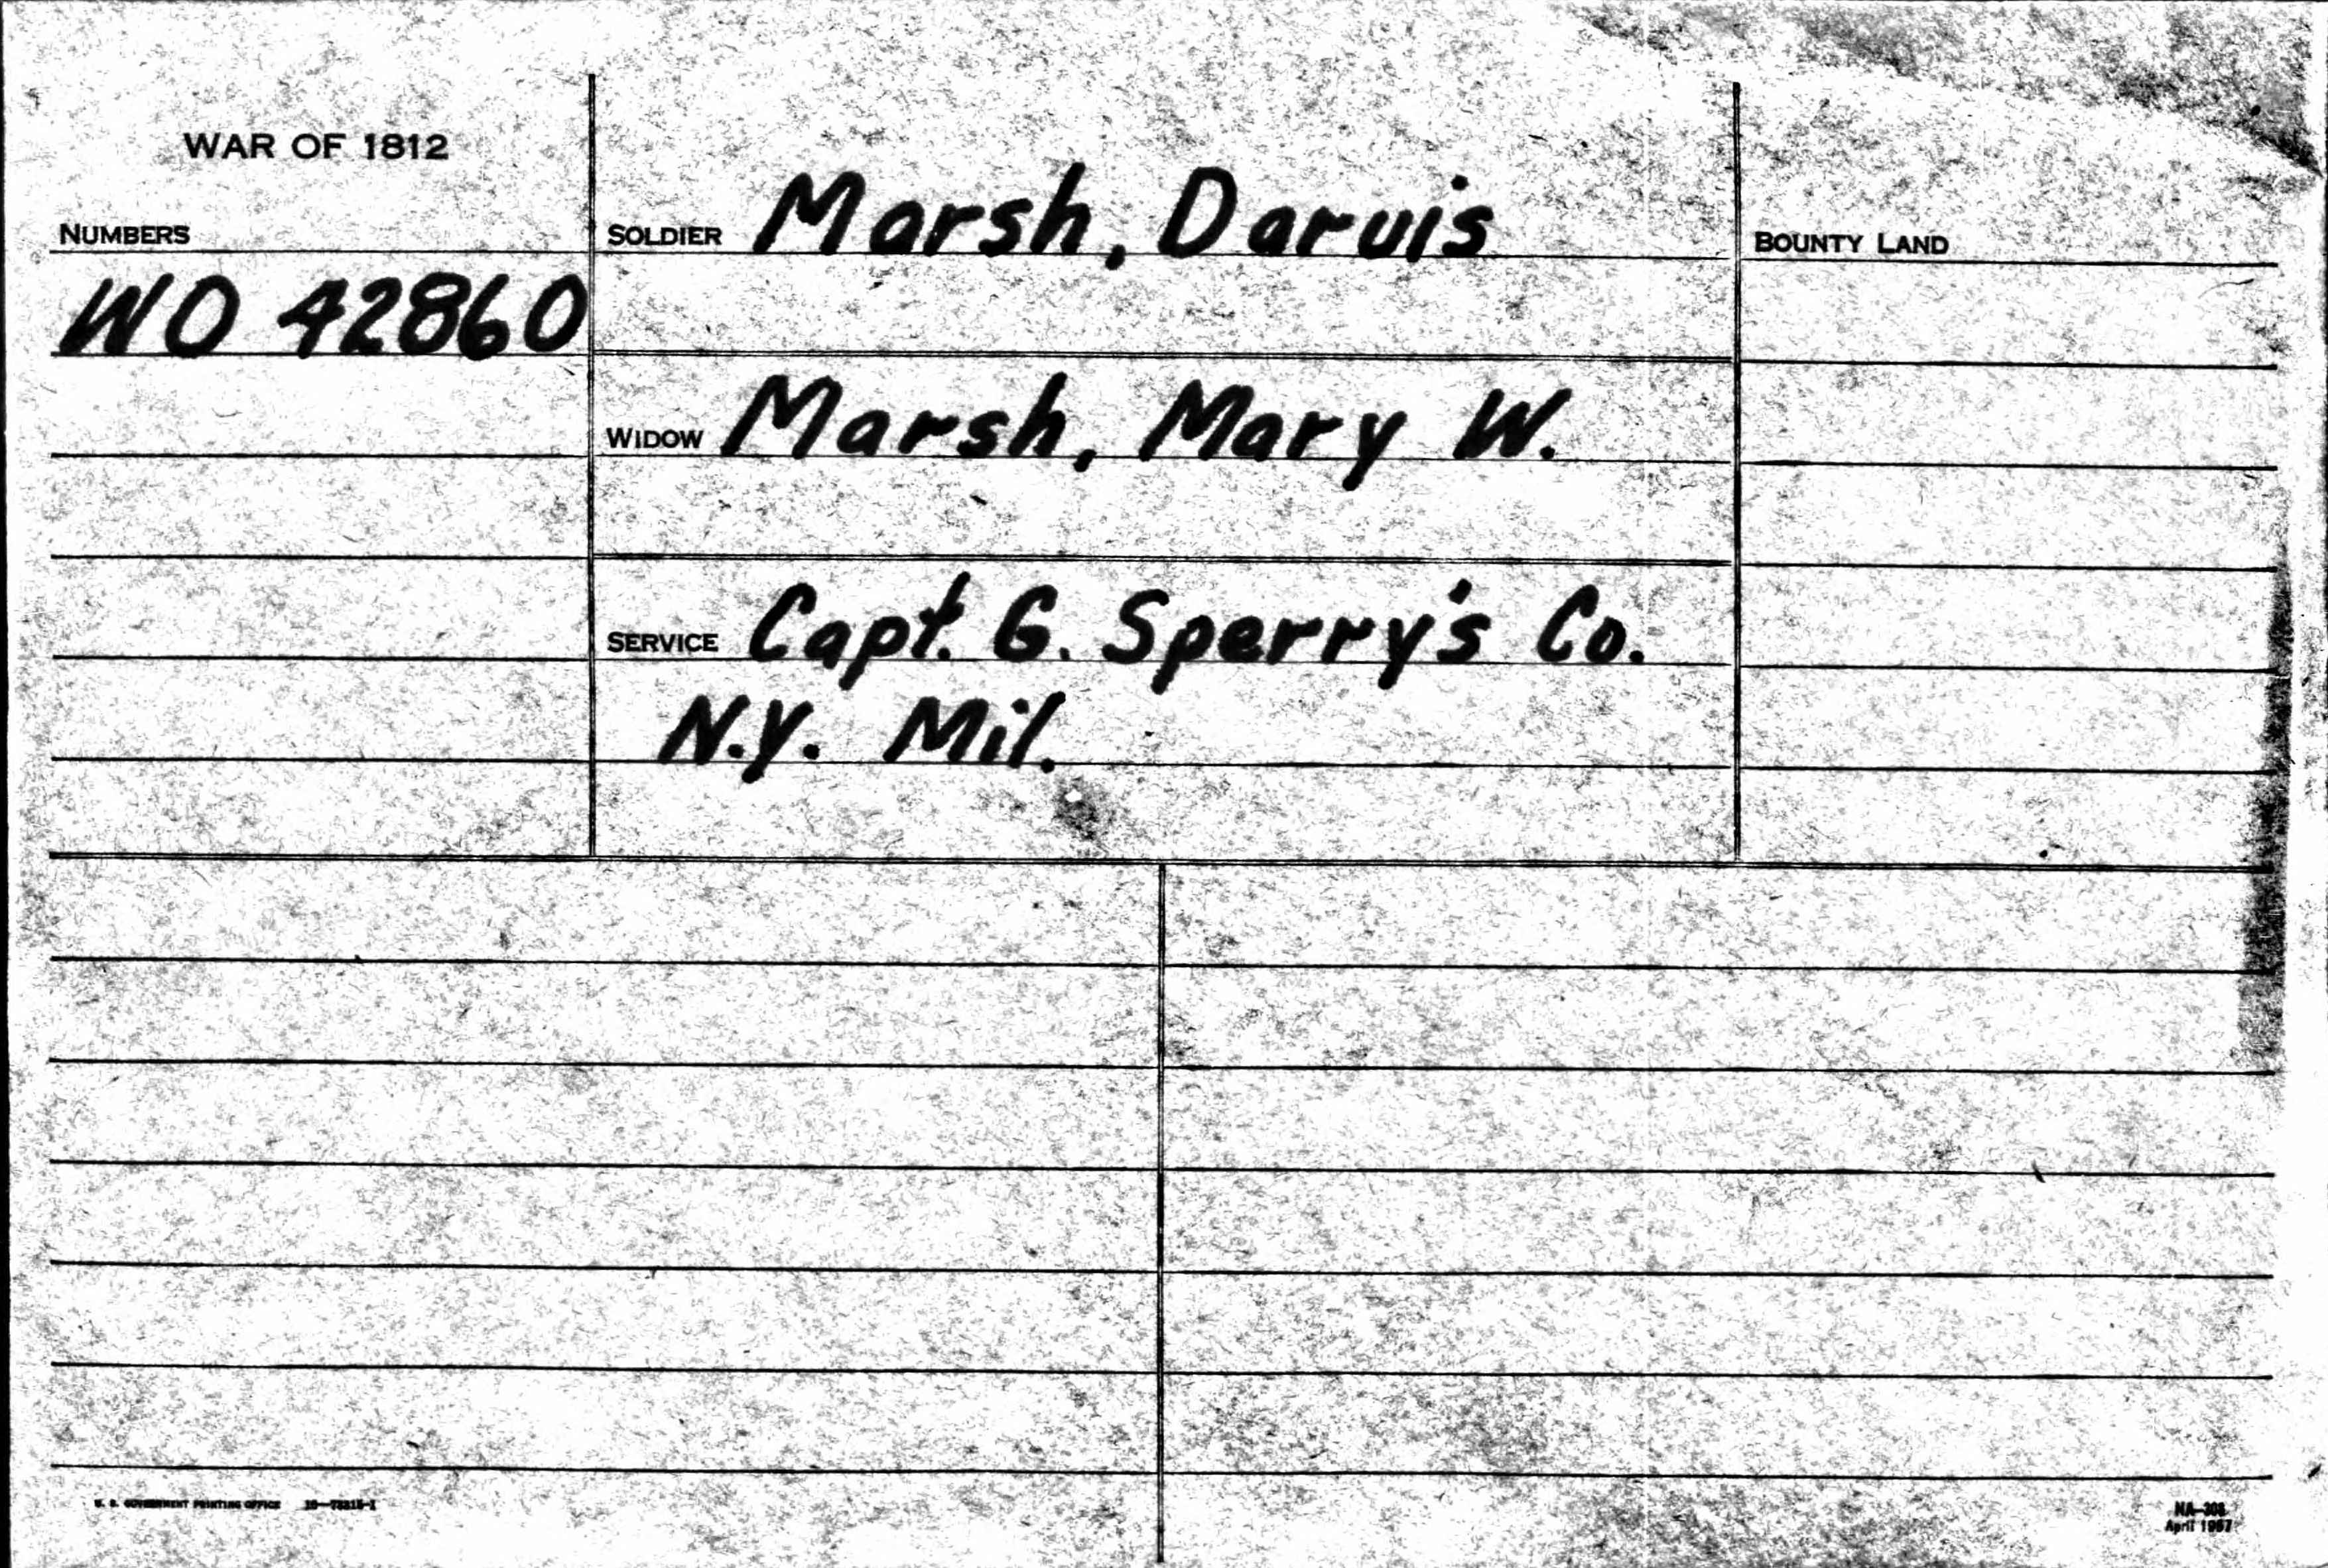 WAR OF 1812
NUMBERS
WO 42860
SOLDIER Marsh, Darvis
WIDOW Marsh, Mary W.
SERVICE Capt. G. Sperry's Co.
N.Y. Mil.
BOUNTY LAND
U. S. GOVERNMENT PRINTING OFFICE
NA-308
April 1957